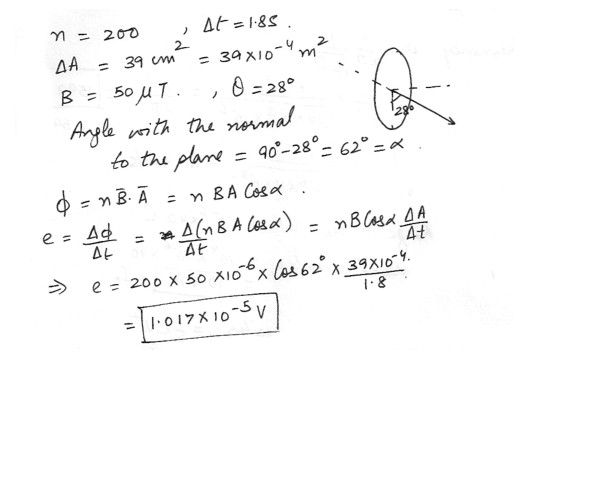 n = 200 , Δt = 1.8S.
ΔA = 39 cm² = 39×10⁻⁴ m²
B = 50 μT. , θ = 28°
28°
Angle with the normal
to the plane = 90°-28° = 62° = α.
ϕ = n B̄. Ā = n BA Cosα.
e = Δϕ/Δt = Δ(nBA Cosα)/Δt = nBCosα ΔA/Δt
⇒ e = 200 × 50 ×10⁻⁶ × Cos62° × 39×10⁻⁴/1.8.
= 1.017×10⁻⁵ V